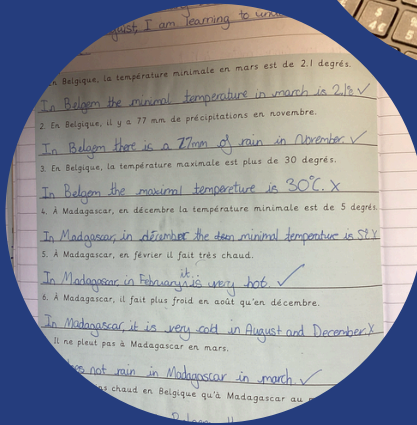 gust, I am learning to un
En Belgique, la température minimale en mars est de 2.1 degrés.
In Belgem the minimal temperature in march is 2.1° ✓
2. En Belgique, il y a 77 mm de précipitations en novembre.
In Belgem there is a 77mm of rain in November. ✓
3. En Belgique, la température maximale est plus de 30 degrés.
In Belgem the maximal tempereture is 30°C. X
4. À Madagascar, en décembre la température minimale est de 5 degrés.
In Madagascar, in the minimal temperature is 5° X
5. À Madagascar, en février il fait très chaud.
In Madagascar in February it is very hot. ✓
6. À Madagascar, il fait plus froid en août qu'en décembre.
In Madagascar, it is very cold in August and December. X
Il ne pleut pas à Madagascar en mars.
not rain in Madagascar in march. ✓
chaud en Belgique qu'à Madagascar au